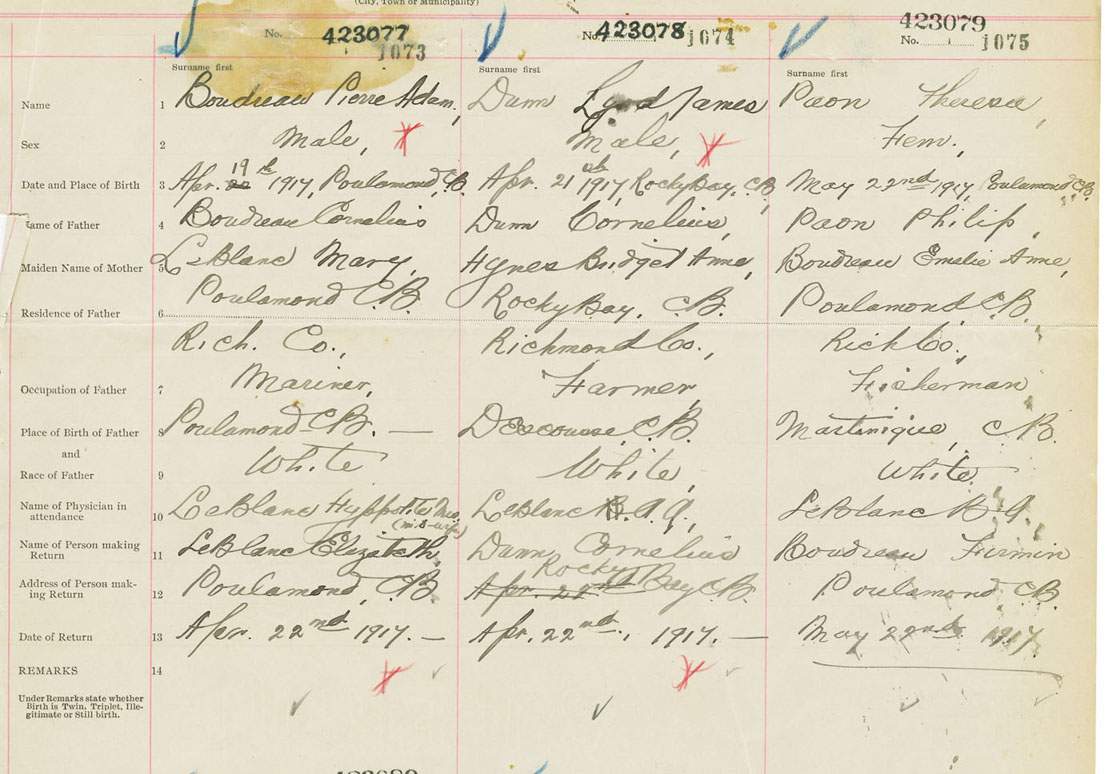 (City, Town or Municipality)
No. 423077 1073
No. 423078 1074
423079
No. 1075
Surname first Surname first Surname first
Name 1 Boudreau Pierre Adam, Dunn James Paon Theresa,
Sex 2 Male, Male, Fem.,
Date and Place of Birth 3 Apr. 19th 1917, Poulamond, C.B. Apr. 21 1917, Rocky Bay, C.B. May 22nd 1917, Poulamond C.B.
Name of Father 4 Boudreau Cornelius Dunn Cornelius, Paon Philip,
Maiden Name of Mother 5 LeBlanc Mary, Hynes Bridget Anne, Boudreau Emelie Anne,
Residence of Father 6 Poulamond C.B. Rocky Bay, C.B. Poulamond, C.B.
Rich. Co., Richmond Co., Rich Co.,
Occupation of Father 7 Mariner, Farmer, Fisherman
Place of Birth of Father 8 Poulamond C.B. — Descousse, C.B. Martinique, C.B.
and
Race of Father 9 White White, White
Name of Physician in
attendance 10 LeBlanc Hyppolite Mrs. LeBlanc LeBlanc B.A.
(mid-wife)
Name of Person making
Return 11 LeBlanc Elizabeth, Dunn Cornelius Boudreau Firmin
Address of Person mak-
ing Return 12 Poulamond, C.B. Apr. 22nd Rocky Bay C.B. Poulamond C.B.
Date of Return 13 Apr. 22nd 1917. — Apr. 22nd, 1917. — May 22nd 1917.
REMARKS 14
Under Remarks state whether
Birth is Twin, Triplet, Ille-
gitimate or Still birth.